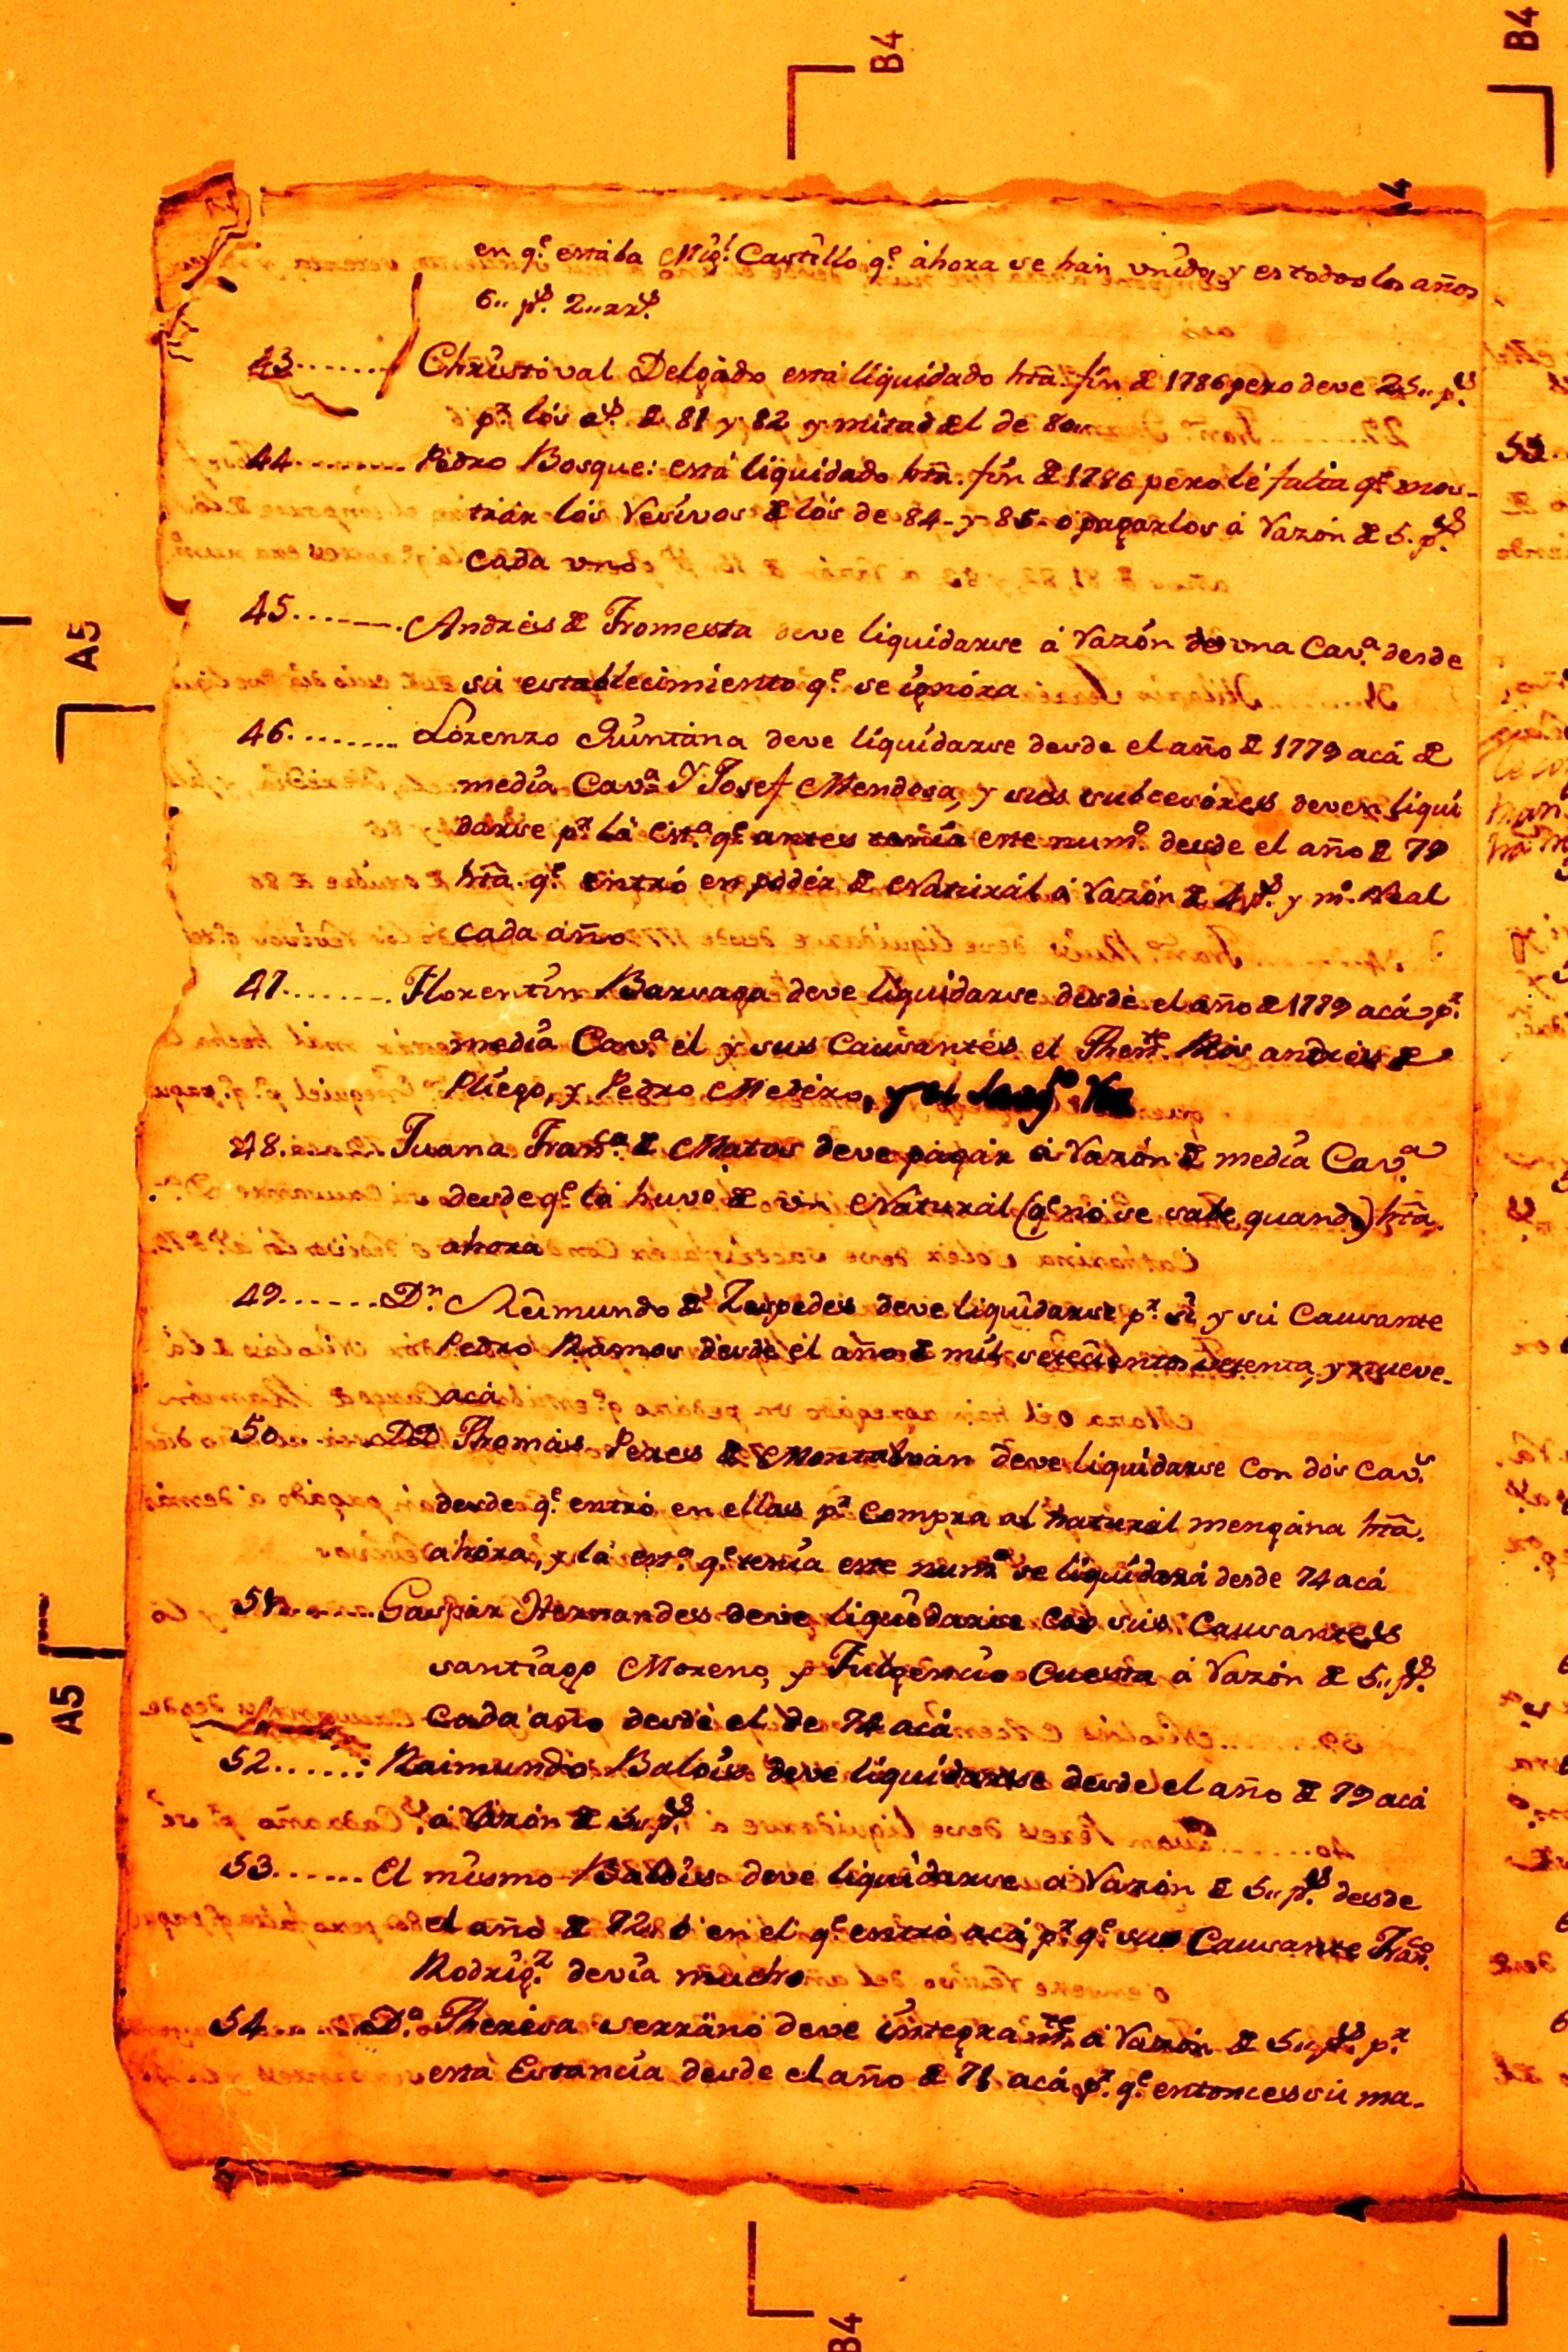 B4
B4
4
en q.e estaba Mig.l Castillo q.e ahora se han unido, y es todos los años
6,, p.s 2,, rr.s
43........ Christoval Delgado está liquidado htã. fin de 1786 pero deve 25,, p.s
p.r los a.s de 81 y 82 y mitad del de 80,,
44......... Pedro Bosque: está liquidado htã. fin de 1786 pero le falta q.e mos-
trár los resivos de los de 84- y 85- o pagarlos á razón de 5. p.s
cada uno
45........ Andréss de Fromesta deve liquidarse á razón de una Cav.a desde
su establecimiento q.e se ignóra
46......... Lorenzo Quintana deve liquidarse desde el año de 1779 acá de
media Cav.a Y Josef Mendosa, y sus subcesóress deven liqui
darse p.r la est.a q.e antes tenía este num.o desde el año de 79
htã. q.e entró en podér de Naturál á razón de 4 p.s y m.o Real
cada año
47........ Florentin Barsaga deve liquidarse desde el año de 1779 acá p.r
media Cav.a el y sus Causantés el Then.te Rõs andréss de
Pliego, y Pedro Medero, y el
48. Juana Fran.ca de Matos deve pagár á razón de media Cav.a
desde q.e la huvo de un Naturál (q.e no se sabe quando) htã.
ahora
49...... D.n Reimundo de Zespedes deve liquidarse p.r si y su Causante
Pedro Ramos desde el año de mil setecientos setenta, y nueve.
acá
50...... DD Thomás Peress de Montalván deve liquidarse con dós cav.s
desde q.e entró en ellas p.r compra al natural mengána htã.
ahóra, y la est.a q.e tenía este num.o se liquidará desde 74 acá
51...... Gaspár Hernandess deve liquidarse con sus Causantess
santiago Moreno, y Fulgencio Cuesta á razón de 5,, p.s
cada año desde el de 74 acá
52......: Raimundo Balois deve liquidarse desde el año de 79 acá
á razón de 5,, p.s
53...... El mismo Balóis deve liquidarse á razón de 5,, p.s desde
el año de 72, ó en el q.e entró acá p.r q.e su Causante Fran.co
Rodrig.z devía mucho
54...... D.a Theresa serrano deve integram.te á razón de 5,, p.s p.r
esta Estancia desde el año de 71 acá p.r q.e entonces su ma-
A5
A5
B4